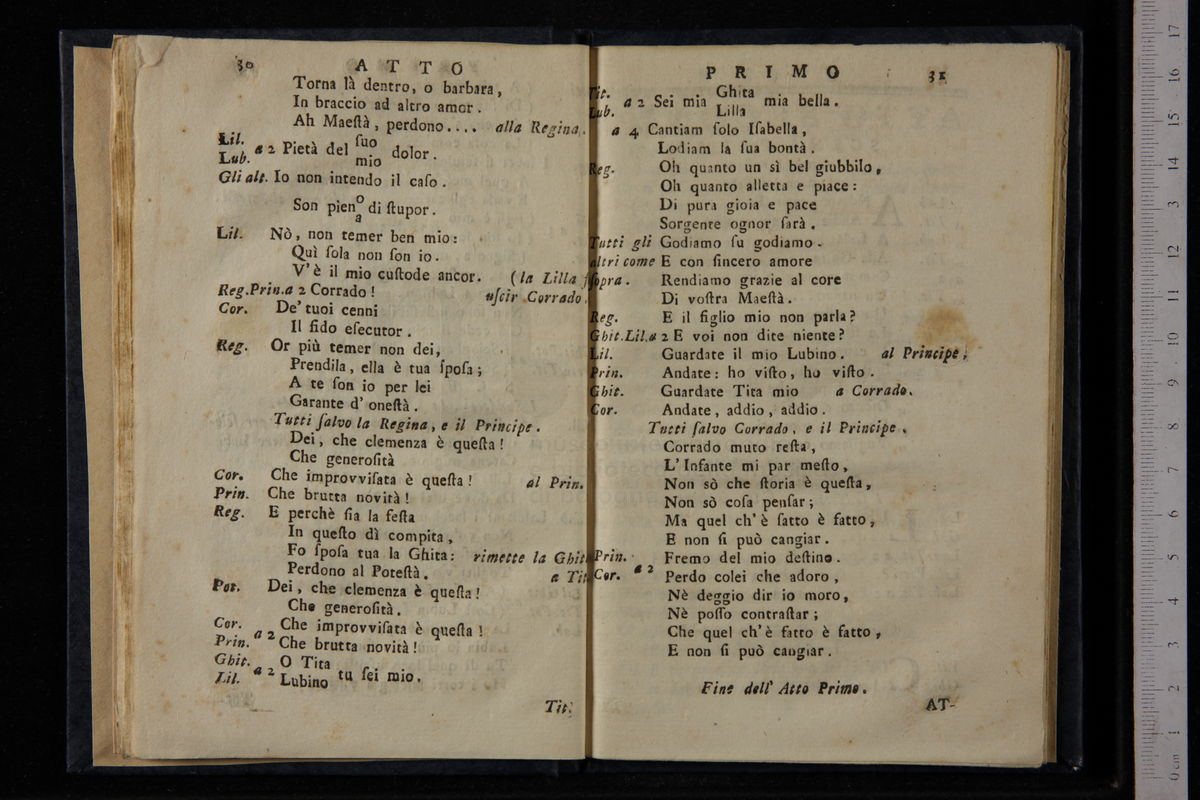 30 ATTO
Torna là dentro, o barbara,
In braccio ad altro amor.
Ah Maeſtà, perdono.... alla Regina.
Lil.
Lub. a 2 Pietà del ſuo
mio dolor.
Gli alt. Io non intendo il caſo.
Son pieno
a di ſtupor.
Lil. Nò, non temer ben mio:
Quì ſola non ſon io.
V'è il mio cuſtode ancor. (la Lilla f
Reg.Prin.a 2 Corrado! uſcir Corrado.
Cor. De' tuoi cenni
Il fido eſecutor.
Reg. Or più temer non dei,
Prendila, ella è tua ſpoſa;
A te ſon io per lei
Garante d' oneſtà.
Tutti ſalvo la Regina, e il Principe.
Dei, che clemenza è queſta!
Che generoſità
Cor. Che improvviſata è queſta! al Prin.
Prin. Che brutta novità!
Reg. E perchè ſia la feſta
In queſto dì compita,
Fo ſpoſa tua la Ghita: rimette la Ghit
Perdono al Poteſtà. a Tit
Pot. Dei, che clemenza è queſta!
Che generoſità.
Cor. a 2 Che improvviſata è queſta!
Prin. Che brutta novità!
Ghit. a 2 O Tita
Lil. Lubino tu ſei mio.
Tit.
PRIMO 31
Tit.
Lub. a 2 Sei mia Ghita
Lilla mia bella.
a 4 Cantiam ſolo Iſabella,
Lodiam la ſua bontà.
Reg. Oh quanto un sì bel giubbilo,
Oh quanto alletta e piace:
Di pura gioia e pace
Sorgente ognor ſarà.
Tutti gli Godiamo ſu godiamo.
altri come E con ſincero amore
ſopra. Rendiamo grazie al core
Di voſtra Maeſtà.
Reg. E il figlio mio non parla?
Ghit.Lil.a 2 E voi non dite niente?
Lil. Guardate il mio Lubino. al Principe.
Prin. Andate: ho viſto, ho viſto.
Ghit. Guardate Tita mio a Corrado.
Cor. Andate, addio, addio.
Tutti ſalvo Corrado, e il Principe.
Corrado muto reſta,
L'Infante mi par meſto,
Non sò che ſtoria è queſta,
Non sò coſa penſar;
Ma quel ch'è fatto è fatto,
E non ſi può cangiar.
Prin. Fremo del mio deſtino.
Cor. a 2 Perdo colei che adoro,
Nè deggio dir io moro,
Nè poſſo contraſtar;
Che quel ch'è fatto è fatto,
E non ſi può cangiar.
Fine dell' Atto Primo.
AT-